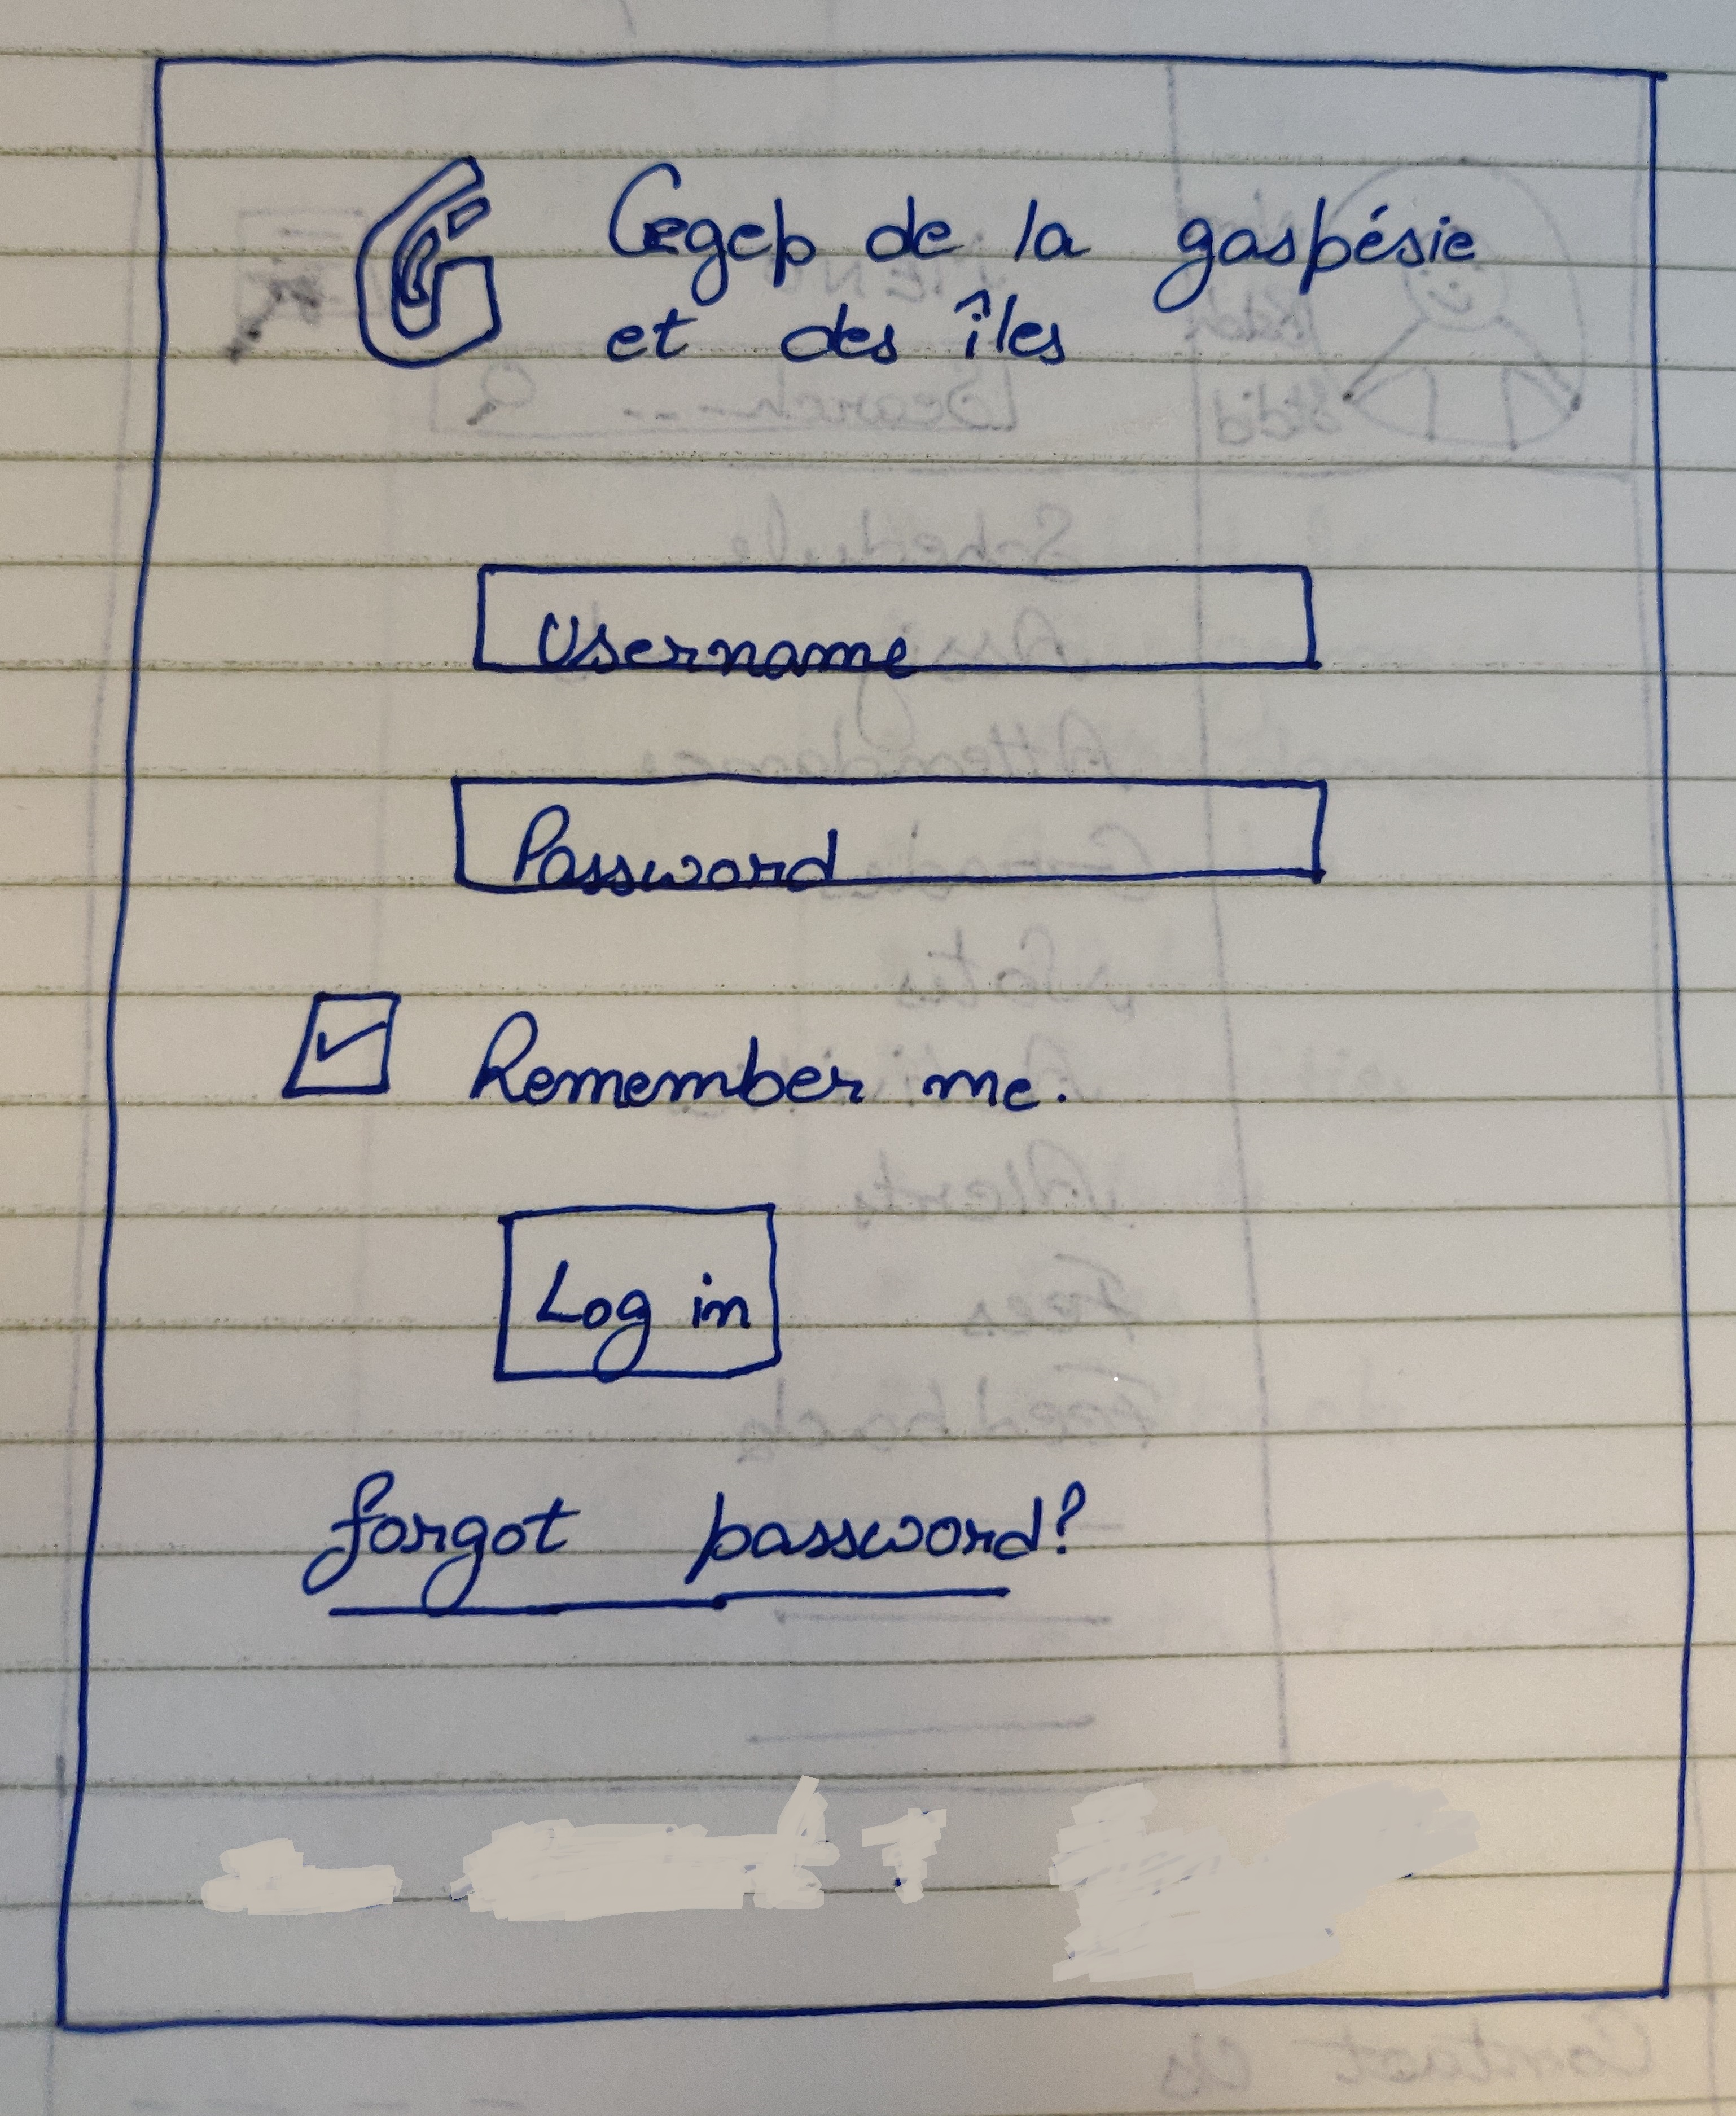 Cegep de la gaspésie
et des îles
Username
Password
Remember me.
Log in
forgot password?